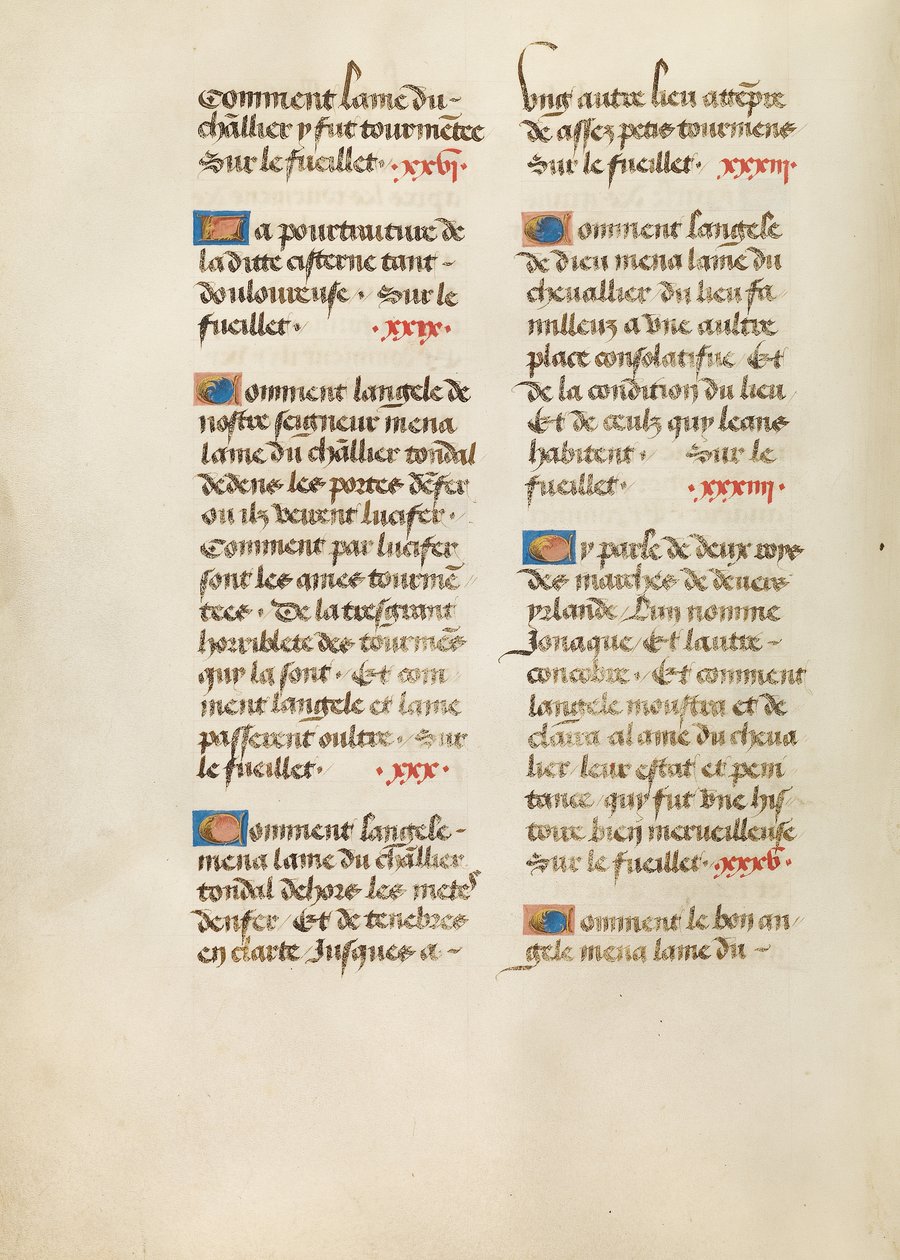 Comment lame du-
chãllier y fut tourmẽtee
Sur le fueillet· ·xxvi·
La pourtraiture de
la ditte cisterne tant -
douloureuse · Sur le
fueillet· ·xxix·
Comment langele de
nostre seigneur mena
lame du chãllier tondal
dedens les portes dẽfer
ou ilz veirent lucifer·
Comment par lucifer
sont les ames tourmẽ
tees · De la tresgrant
horriblete des tourmẽs
quy la sont · Et com
ment langele et lame
passerent oultre · Sur
le fueillet· ·xxx·
Comment langele -
mena lame du chãllier
tondal dehors les metes
denfer / Et de tenebres
en clarte / Jusques a -
vng autre lieu attẽpre
de assez petis tourmens
Sur le fueillet· xxxiii·
Comment langele
de dieu mena lame du
chevallier / du lieu fa
milleuz a vne aultre
place consolatifue / Et
de la condition du lieu
Et de ceulz quy leans
habitent · Sur le
fueillet· ·xxxiiii·
Cy parle de deux roys
des marches de devers
yrlande / Lun nomme
Jonaque / Et lautre -
concobre · Et comment
langele moustra et de
claira a lame du cheua
lier / leur estat et peni
tance / quy fut vne his
toire bien merveilleuse
Sur le fueillet· ·xxxv·
Comment le bon an-
gele mena lame du -